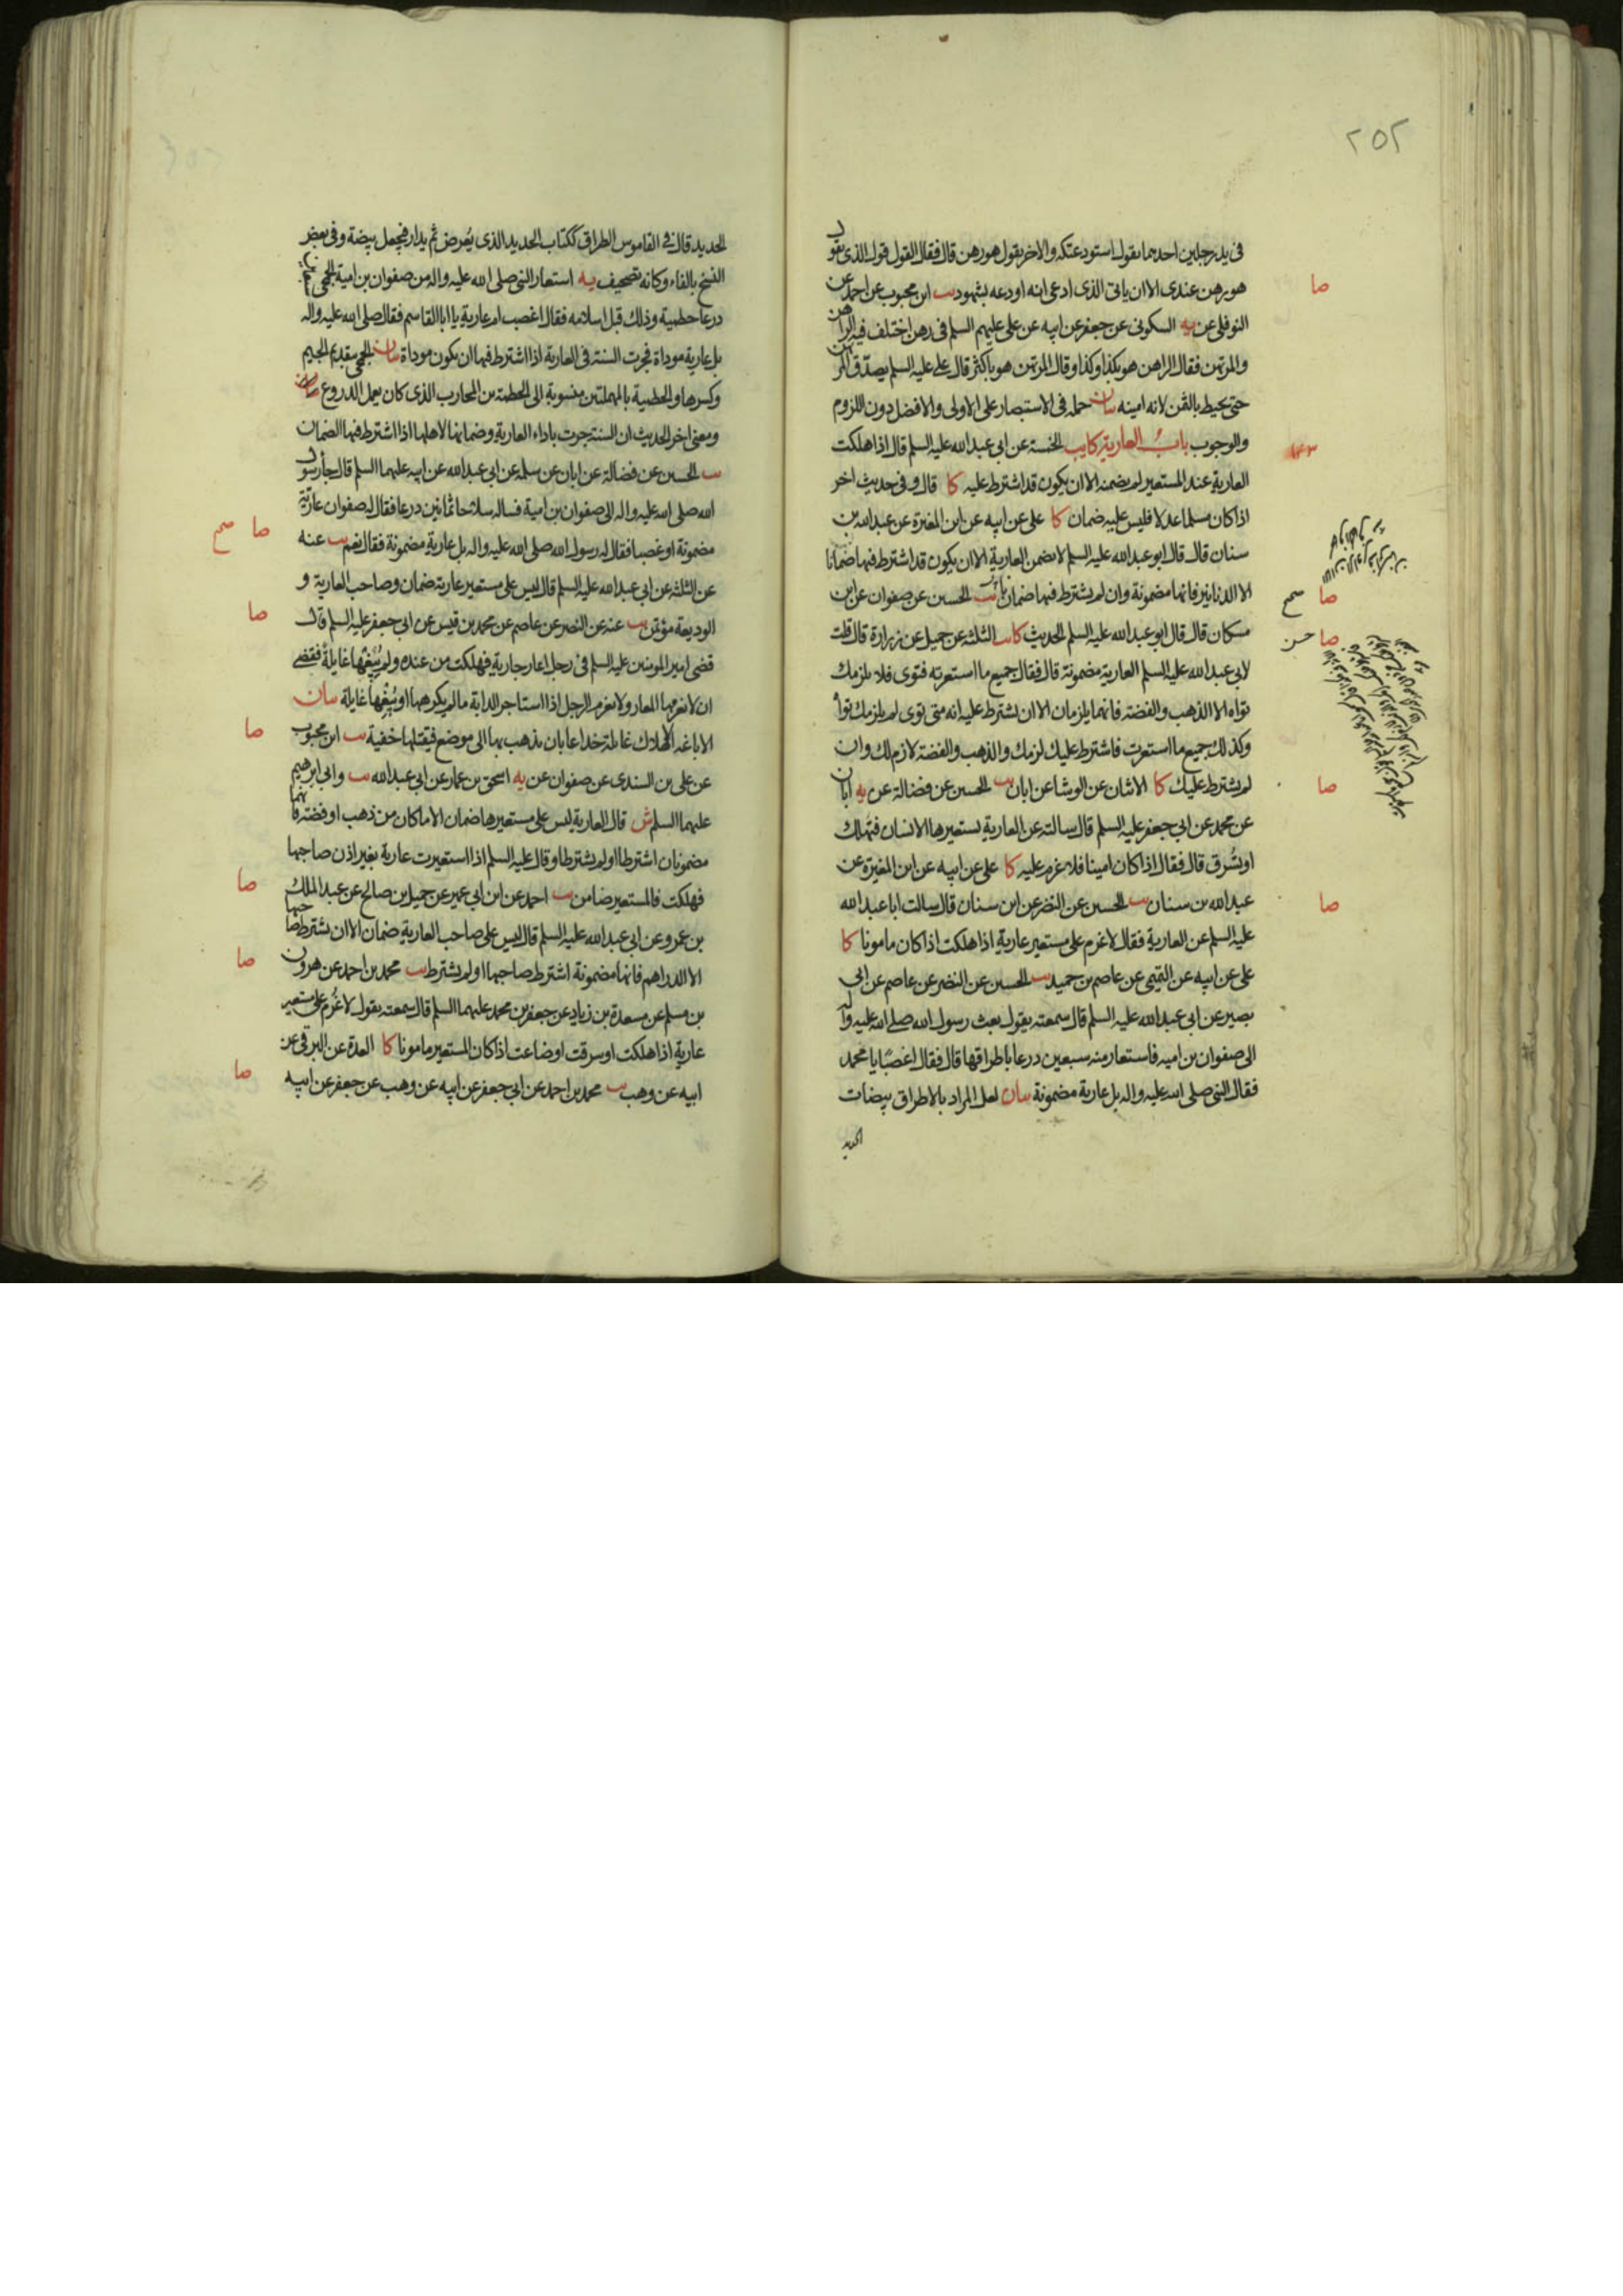 ٢٥٢
فى يد رجلين احدهما يقول استودعتكه والاخر يقول هو رهن قال فقال القول قول الذى يقول
هو رهن عندى الا ان ياتى الذى ادعى انه اودعه بشهود يب ابن محبوب عن احمد عن
صا
النوفلى عن يه السكونى عن جعفر عن ابيه عن على عليهم السلم فى رهن اختلف فيه الراهن
والمرتهن فقال الراهن هو بكذا وكذا وقال المرتهن هو باكثر قال على عليه السلم يصدق المرتهن
حتى يحيط بالثمن لانه امينه بيان حمله فى الاستبصار على الاولى والافضل دون اللزوم
والوجوب باب العارية كا يب الخمسة عن ابى عبد الله عليه السلم قال اذا هلكت
١٤٣
العارية عند المستعير لم يضمنه الا ان يكون قد اشترط عليه كا قال وفى حديث اخر
اذا كان مسلما عدلا فليس عليه ضمان كا على عن ابيه عن ابن المغيرة عن عبد الله بن
سنان قال قال ابو عبد الله عليه السلم لا تضمن العارية الا ان يكون قد اشترط فيها ضمانا
الا الدنانير فانها مضمونة وان لم يشترط فيها ضمانا يب الحسين عن صفوان عن ابن
صا صح
مسكان قال قال ابو عبد الله عليه السلم الحديث كا يب الثلثة عن جميل عن زرارة قال قلت
صا حسن
لابى عبد الله عليه السلم العارية مضمونة قال فقال جميع ما استعرته فتوى فلا يلزمك
تواه الا الذهب والفضة فانهما يلزمان الا ان يشترط عليه انه متى توى لم يلزمك تواه
وكذلك جميع ما استعرت فاشترط عليك لزمك والذهب والفضة لازم لك وان
لم يشترط عليك كا الاثنان عن الوشا عن ابان يب الحسين عن فضالة عن يه ابان
صا
عن محمد عن ابى جعفر عليه السلم قال سالته عن العارية يستعيرها الانسان فتهلك
او تسرق قال فقال اذا كان امينا فلا غرم عليه كا على عن ابيه عن ابن المغيرة عن
عبد الله بن سنان يب الحسين عن النضر عن ابن سنان قال سالت ابا عبد الله
صا
عليه السلم عن العارية فقال لا غرم على مستعير عارية اذا هلكت اذا كان مامونا كا
على عن ابيه عن التميمى عن عاصم بن حميد يب الحسين عن النضر عن عاصم عن ابى
بصير عن ابى عبد الله عليه السلم قال سمعته يقول بعث رسول الله صلى الله عليه واله
الى صفوان بن اميه فاستعار منه سبعين درعا باطراقها قال فقال اغصبا يا محمد
فقال النبى صلى الله عليه واله بل عارية مضمونة بيان لعل المراد بالاطراق بيضات
الحديد
الحديد قال فى القاموس الطراق ككتاب الحديد الذى يعرض ثم يدار فيجعل بيضة وفى بعض
النسخ بالفاء وكانه تصحيف يه استعار النبى صلى الله عليه واله من صفوان بن امية الجمحى
درعا حطمية وذلك قبل اسلامه فقال اغصب ام عارية يا ابا القاسم فقال صلى الله عليه واله
بل عارية موداة فجرت السنة فى العارية اذا اشترط فيها ان يكون موداة بيان الجمحى بتقديم الجيم
وكسرها والحطمية بالمهملتين منسوبة الى الحطمة بن المحارب الذى كان يعمل الدروع
ومعنى اخر الحديث ان السنة جرت باداء العارية وضمانها لاهلها اذا اشترط فيها الضمان
يب الحسين عن فضالة عن ابان عن سلمة عن ابى عبد الله عن ابيه عليهما السلم قال جاء رسول
الله صلى الله عليه واله الى صفوان بن امية فساله سلاحا ثمانين درعا فقال له صفوان عارية
مضمونة او غصبا فقال له رسول الله صلى الله عليه واله بل عارية مضمونة فقال نعم يب عنه
صا صح
عن الثلثة عن ابى عبد الله عليه السلم قال ليس على مستعير عارية ضمان وصاحب العارية و
الوديعة مؤتمن يب عنه عن النضر عن عاصم عن محمد بن قيس عن ابى جعفر عليه السلم قال
صا
قضى امير المومنين عليه السلم فى رجل اعار جارية فهلكت من عنده ولم يبغها غايلة فقضى
ان لا يغرمها المعار ولا يغرم الرجل اذا استاجر الدابة ما لم يكرهها او يبغها غايلة بيان
الاباغة الاهلاك غايلة خداعا بان يذهب بها الى موضع فيقتلها خفية يب ابن محبوب
صا
عن على بن السندى عن صفوان عن يه اسحق بن عمار عن ابى عبد الله يب وابى ابرهيم
عليهما السلم ش قال العارية ليس على مستعيرها ضمان الا ما كان من ذهب او فضة فانهما
مضمونان اشترطا او لم يشترطا وقال عليه السلم اذا استعيرت عارية بغير اذن صاحبها
فهلكت فالمستعير ضامن يب احمد عن ابن ابى عمير عن جميل بن صالح عن عبد الملك
صا
بن عمرو عن ابى عبد الله عليه السلم قال ليس على صاحب العارية ضمان الا ان يشترط صاحبها
الا الدراهم فانها مضمونة اشترط صاحبها او لم يشترط يب محمد بن احمد عن هرون
صا
بن مسلم عن مسعدة بن زياد عن جعفر بن محمد عليهما السلم قال سمعته يقول لا غرم على مستعير
عارية اذا هلكت او سرقت او ضاعت اذا كان المستعير مامونا كا العدة عن البرقى عن
ابيه عن وهب يب محمد بن احمد عن ابى جعفر عن ابيه عن وهب عن جعفر عن ابيه
صا